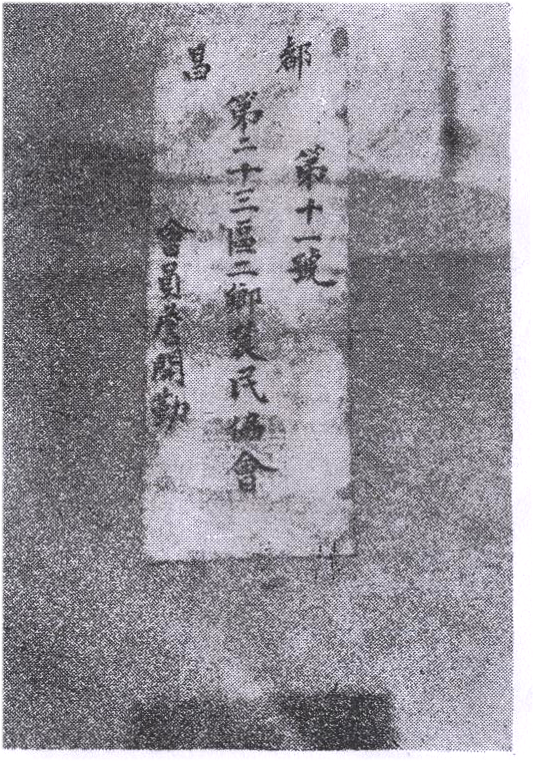 都昌
第十一號
第二十三區二鄉農民協會
會員詹開勤